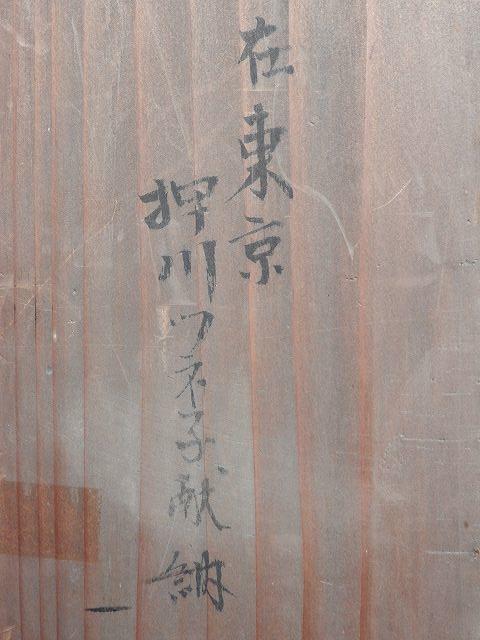 在東京
押川ツネ子献納